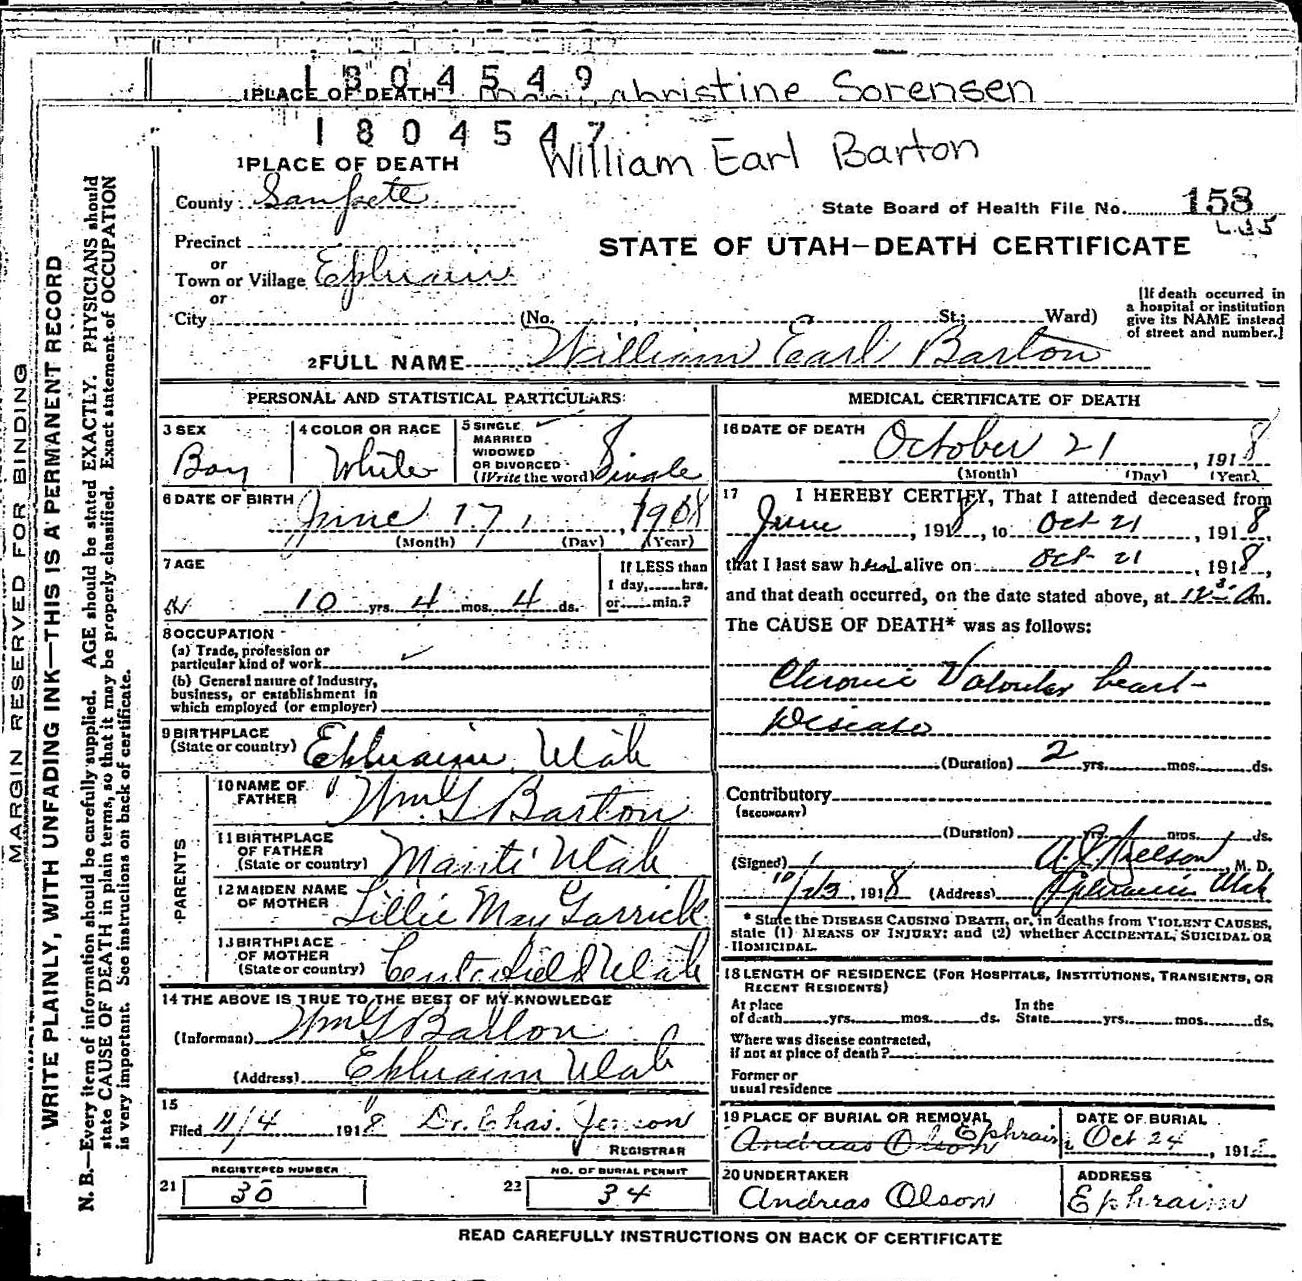 1804549
1 PLACE OF DEATH Christine Sorensen
1804547
1 PLACE OF DEATH William Earl Barton
County Sanpete
State Board of Health File No. 158
Precinct
or
STATE OF UTAH—DEATH CERTIFICATE
Town or Village Ephraim
or
City (No. St.; Ward)
[If death occurred in a hospital or institution give its NAME instead of street and number.]
2 FULL NAME William Earl Barton
PERSONAL AND STATISTICAL PARTICULARS
3 SEX Boy
4 COLOR OR RACE White
5 SINGLE MARRIED WIDOWED OR DIVORCED (Write the word) Single
6 DATE OF BIRTH June 17, 1908
(Month) (Day) (Year)
7 AGE
10 yrs. 4 mos. 4 ds.
If LESS than 1 day, hrs. or min.?
8 OCCUPATION
(a) Trade, profession or particular kind of work
(b) General nature of Industry, business, or establishment in which employed (or employer)
9 BIRTHPLACE (State or country) Ephraim Utah
PARENTS
10 NAME OF FATHER Wm G Barton
11 BIRTHPLACE OF FATHER (State or country) Manti Utah
12 MAIDEN NAME OF MOTHER Lillie May Garrick
13 BIRTHPLACE OF MOTHER (State or country) Centerfield Utah
14 THE ABOVE IS TRUE TO THE BEST OF MY KNOWLEDGE
(Informant) Wm G Barton
(Address) Ephraim Utah
15
Filed 11/4 1918 Dr. Chas. Jenson
REGISTRAR
REGISTERED NUMBER
21 30
NO. OF BURIAL PERMIT
22 34
MEDICAL CERTIFICATE OF DEATH
16 DATE OF DEATH October 21, 1918
(Month) (Day) (Year)
17 I HEREBY CERTIFY, That I attended deceased from
June, 1918, to Oct 21, 1918
that I last saw h alive on Oct 21, 1918,
and that death occurred, on the date stated above, at 12 Am.
The CAUSE OF DEATH* was as follows:
Chronic Valvular heart
Disease
(Duration) 2 yrs. mos. ds.
Contributory
(SECONDARY)
(Duration) yrs. mos. ds.
(Signed) Nelson, M. D.
10/23, 1918 (Address) Ephraim Utah
* State the DISEASE CAUSING DEATH, or, in deaths from VIOLENT CAUSES,
state (1) MEANS OF INJURY; and (2) whether ACCIDENTAL, SUICIDAL OR
HOMICIDAL.
18 LENGTH OF RESIDENCE (FOR HOSPITALS, INSTITUTIONS, TRANSIENTS, OR
RECENT RESIDENTS)
At place of death yrs. mos. ds. In the State yrs. mos. ds.
Where was disease contracted,
if not at place of death?
Former or
usual residence
19 PLACE OF BURIAL OR REMOVAL Ephraim
Andreas Olson
DATE OF BURIAL
Oct 24, 191
20 UNDERTAKER
Andreas Olson
ADDRESS
Ephraim
READ CAREFULLY INSTRUCTIONS ON BACK OF CERTIFICATE
MARGIN RESERVED FOR BINDING
WRITE PLAINLY, WITH UNFADING INK—THIS IS A PERMANENT RECORD
N. B.—Every item of information should be carefully supplied. AGE should be stated EXACTLY. PHYSICIANS should
state CAUSE OF DEATH in plain terms, so that it may be properly classified. Exact statement of OCCUPATION
is very important. See instructions on back of certificate.